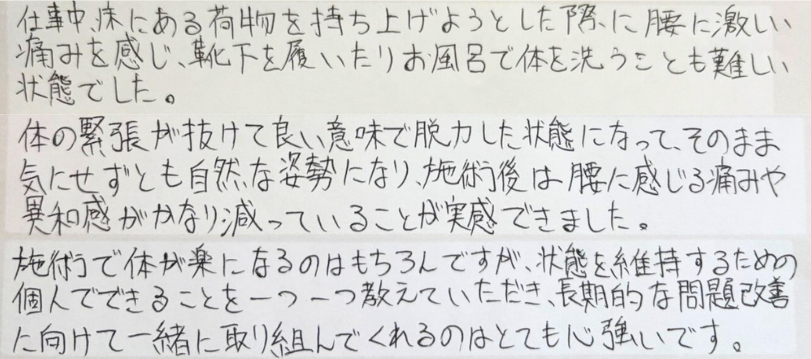 仕事中、床にある荷物を持ち上げようとした際に腰に激しい
痛みを感じ、靴下を履いたりお風呂で体を洗うことも難しい
状態でした。
体の緊張が抜けて良い意味で脱力した状態になって、そのまま
気にせずとも自然な姿勢になり、施術後は腰に感じる痛みや
異和感がかなり減っていることが実感できました。
施術で体が楽になるのはもちろんですが、状態を維持するための
個人でできることを一つ一つ教えていただき、長期的な問題改善
に向けて一緒に取り組んでくれるのはとても心強いです。